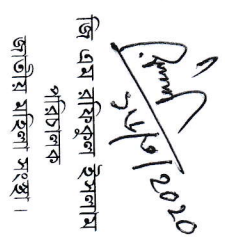 ২৮/৬/2020
জি এম রফিকুল ইসলাম
পরিচালক
জাতীয় মহিলা সংস্থা।